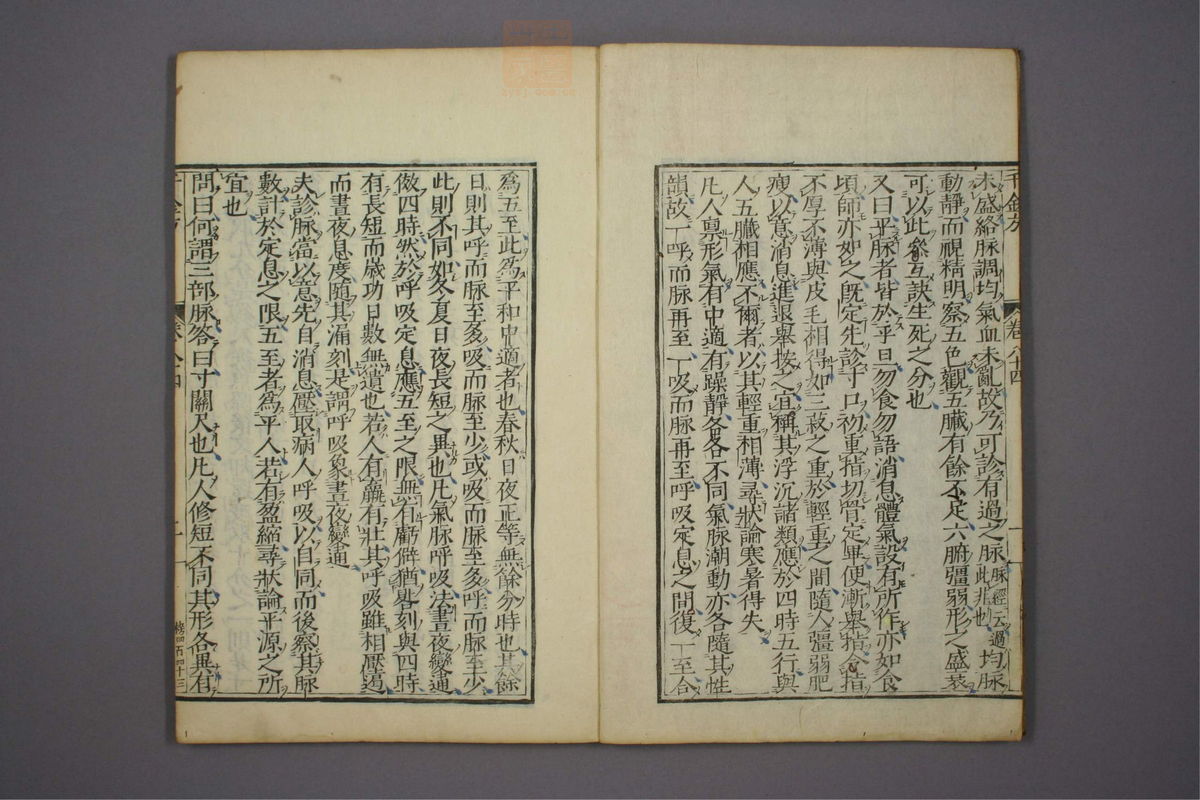 千金方
卷八十四
未盛絡脉調均氣血未亂故乃可診有過之脉脉經云過此非也均脉
動靜而視精明察五色觀五臟有餘不足六腑彊弱形之盛衰
可以此參互訣生死之分也
又曰平脉者皆於平旦勿食勿語消息體氣設有所作亦如食
頃師亦如之既定先診寸口初重指切骨定畢便漸舉指令指
不厚不薄與皮毛相得如三菽之重於輕重之間隨人彊弱肥
瘦以意消息進退舉按之宜稱其浮沉諸類應於四時五行與
人五臟相應不爾者以其輕重相薄尋狀論寒暑得失
凡人稟形氣有中適有躁靜各各不同氣脉潮動亦各隨其性
韻故一呼而脉再至一吸而脉再至呼吸定息之間復一至合
為五至此為平和中適者也春秋日夜正等無餘分時也其餘
日則其呼而脉至多吸而脉至少或吸而脉至多呼而脉至少
此則不同如冬夏日夜長短之異也凡氣脉呼吸法晝夜變通
倣四時然於呼吸定息應五至之限無有虧僻猶晷刻與四時
有長短而歲功日數無遺也若人有羸有壯其呼吸雖相壓遏
而晝夜息度隨其漏刻是謂呼吸象晝夜變通
夫診脉當以意先自消息壓取病人呼吸以自同而後察其脉
數計於定息之限五至者為平人若有盈縮尋狀論平源之所
宜也
問曰何謂三部脉答曰寸關尺也凡人修短不同其形各異有
千金方
卷八十四
四百四十三